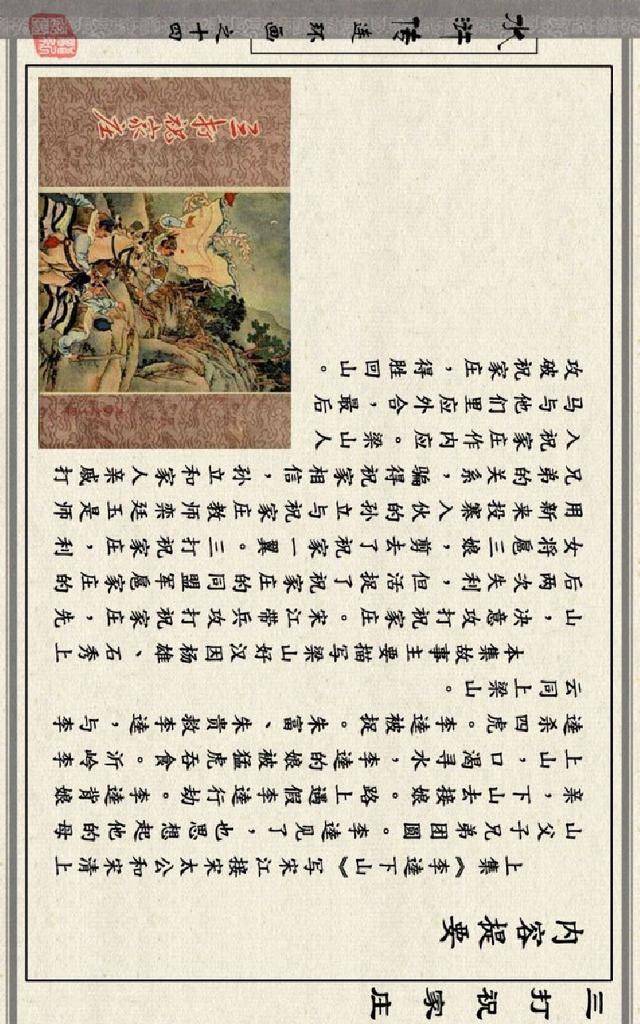 三打祝家庄
内容提要
上集《李逵下山》写宋江接宋太公和宋清上
山父子兄弟团圆。李逵见了，也思想起他的母
亲，下山去接娘。路上遇假李逵行劫。李逵背娘
上山，口渴寻水，李逵的娘被猛虎吞食。沂岭李
逵杀四虎。李逵被捉。朱富、朱贵救李逵，与李
云同上梁山。
本集故事主要描写梁山好汉因杨雄、石秀上
山，决意攻打祝家庄。宋江带兵攻打祝家庄，先
后两次失利，但活捉了祝家庄的同盟军扈家庄的
女将扈三娘，剪去了祝家一翼。三打祝家庄，利
用新来投寨入伙的孙立与祝家庄教师栾廷玉是师
兄弟的关系，骗得祝家相信，孙立和家人亲戚打
入祝家庄作内应。梁山人
马与他们里应外合，最后
攻破祝家庄，得胜回山。
三打祝家庄
水浒传连环画之十四